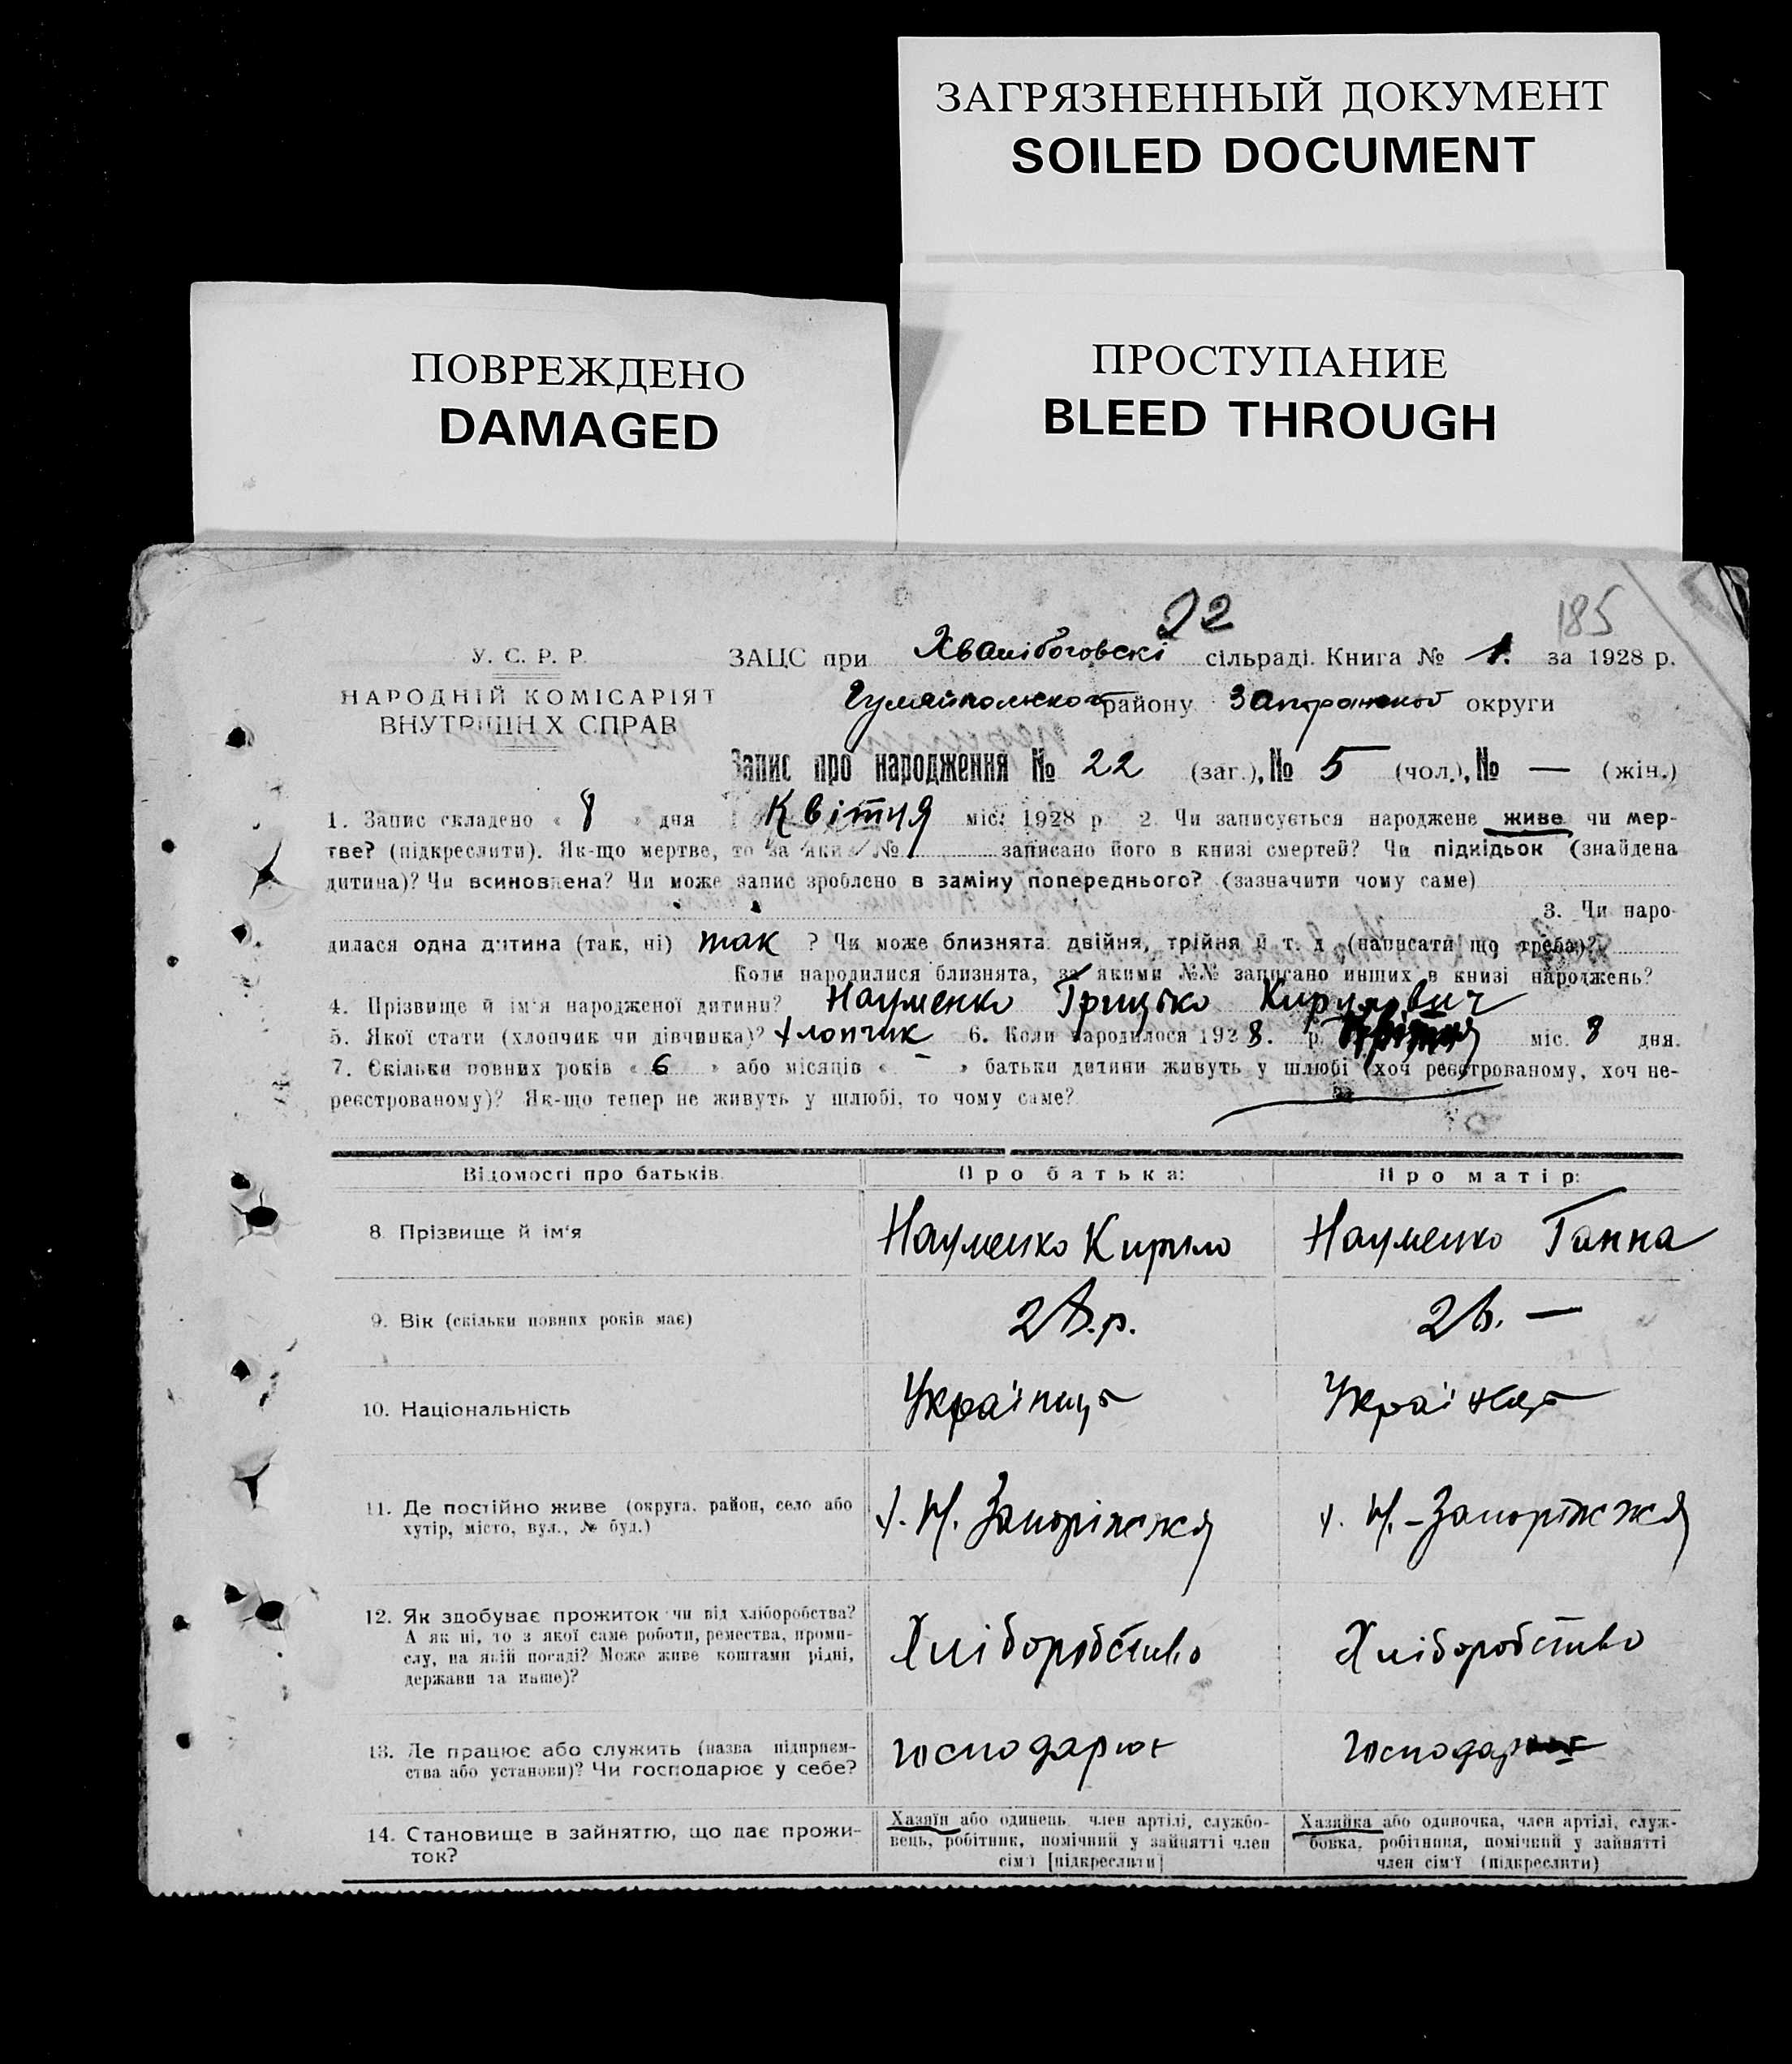 ЗАГРЯЗНЕННЫЙ ДОКУМЕНТ
SOILED DOCUMENT
ПОВРЕЖДЕНО
DAMAGED
ПРОСТУПАНИЕ
BLEED THROUGH
22
185
У. С. Р. Р.
НАРОДНІЙ КОМІСАРІЯТ
ВНУТРІШНІХ СПРАВ
ЗАЦС при Хвалібоговскі сільраді. Книга № 1. за 1928 р.
Гуляйпольского району Запорожской округи
Запис про народження № 22 (заг.), № 5 (чол.), № — (жін.)
1. Запис складено « 8 » дня Квітня міс. 1928 р. 2. Чи записується народжене живе чи мер-
тве? (підкреслити). Як-що мертве, то за яким № записано його в книзі смертей? Чи підкідьок (знайдена
дитина)? Чи всиновлена? Чи може запис зроблено в заміну попереднього? (зазначити чому саме)
3. Чи наро-
дилася одна дитина (так, ні) так ? Чи може близнята: двійня, трійня й т. д. (написати що треба)?
Коли народилися близнята, за якими №№ записано инших в книзі народжень?
4. Прізвище й ім'я народженої дитини? Науменко Грицько Кирилович
5. Якої стати (хлопчик чи дівчинка)? хлопчик 6. Коли народилося 1928. р. Квітня міс. 8 дня.
7. Скільки повних років « 6 » або місяців « » батьки дитини живуть у шлюбі (хоч реєстрованому, хоч не-
реєстрованому)? Як-що тепер не живуть у шлюбі, то чому саме?
Відомості про батьків. Про батька: Про матір:
8. Прізвище й ім'я Науменко Кирило Науменко Ганна
9. Вік (скільки повних років має) 28.р. —
10. Національність Українць Українць
11. Де постійно живе (округа, район, село або
хутір, місто, вул., № буд.) х. Н. Запоріжжя х. Н.-Запоріжжя
12. Як здобуває прожиток чи від хліборобства?
А як ні, то з якої саме роботи, ремества, проми-
слу, на якій посаді? Може живе коштами рідні,
держави та инше)? Хліборобство Хліборобство
13. Де працює або служить (назва підприєм-
ства або установи)? Чи господарює у себе? господарює господар
14. Становище в зайняттю, що дає прожи-
ток?
Хазяїн або одинець, член артілі, службо-
вець, робітник, помічний у зайнятті член
сім'ї [підкреслити]
Хазяйка або одиночка, член артілі, служ-
бовка, робітниця, помічний у зайнятті
член сім'ї (підкреслити)